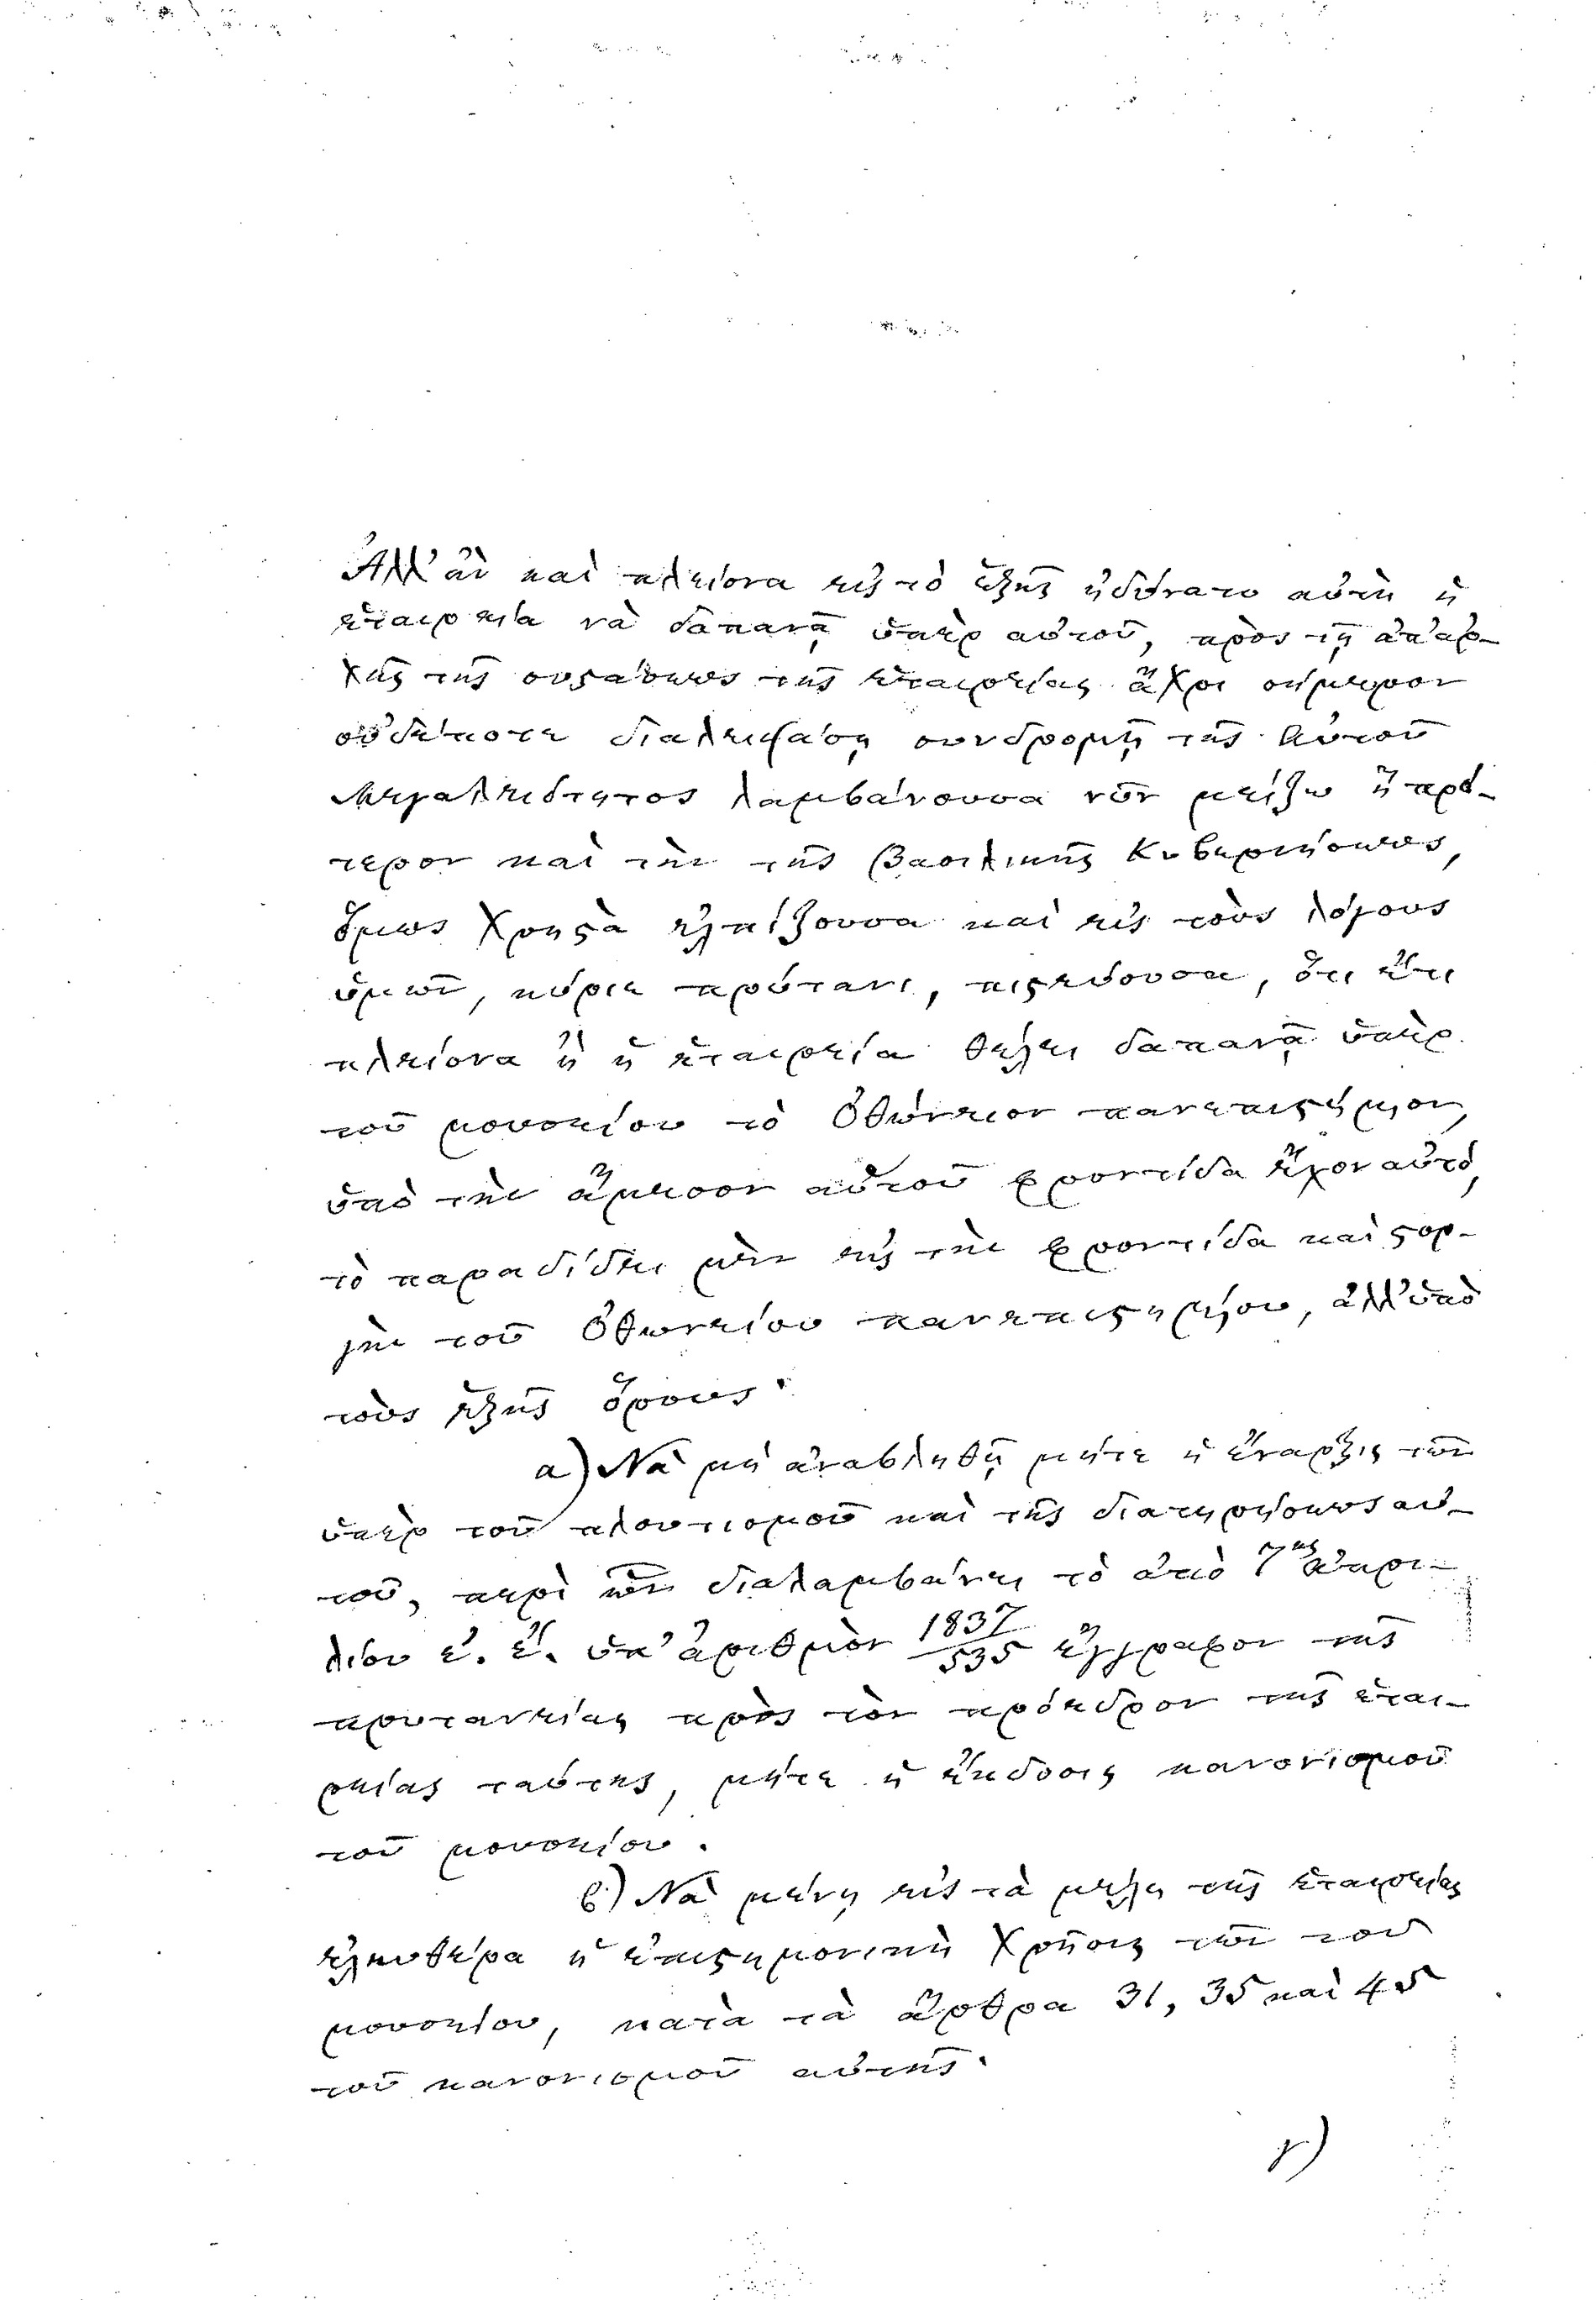 Ἀλλ' ἂν καὶ πλείονα εἰς τὸ ἑξῆς ἠδύνατο αὐτὴ ἡ
ἑταιρεία νὰ δαπανᾷ ὑπὲρ αὐτοῦ, πρὸς τῇ ἀπ' ἀρ-
χῆς τῆς συϛάσεως τῆς ἑταιρείας ἄχρι σήμερον
οὐδέποτε διαλειψάσῃ συνδρομῇ τῆς Αὐτοῦ
Μεγαλειότητος λαμβάνουσα νῦν μείζω ἢ πρό-
τερον καὶ τὴν τῆς βασιλικῆς Κυβερνήσεως,
ὅμως χρηϛὰ ἐλπίζουσα καὶ εἰς τοὺς λόγους
ὑμῶν, κύριε πρύτανι, πιϛεύουσα, ὅτι ἔτι
πλείονα ἢ ἡ ἑταιρεία θέλει δαπανᾷ ὑπὲρ
τοῦ μουσείου τὸ Ὀθώνειον πανεπιϛήμιον,
ὑπὸ τὴν ἄμεσον αὑτοῦ φροντίδα ἔχον αὐτὸ,
τὸ παραδίδει μὲν εἰς τὴν φροντίδα καὶ ϛορ-
γὴν τοῦ Ὀθωνείου πανεπιϛημίου, ἀλλ' ὑπὸ
τοὺς ἑξῆς ὅρους·
α) Νὰ μὴ ἀναβληθῇ μήτε ἡ ἔναρξις τῶν
ὑπὲρ τοῦ πλουτισμοῦ καὶ τῆς διατηρήσεως αὐ-
τοῦ, περὶ ὧν διαλαμβάνει τὸ ἀπὸ 7ης ἀπρι-
λίου ἐ. ἔ. ὑπ' ἀριθμὸν 1837/535 ἔγγραφον τῆς
πρυτανείας πρὸς τὸν πρόεδρον τῆς ἑται-
ρείας ταύτης, μήτε ἡ ἔκδοσις κανονισμοῦ
τοῦ μουσείου.
β) Νὰ μένῃ εἰς τὰ μέλη τῆς ἑταιρείας
ἐλευθέρα ἡ ἐπιϛημονικὴ χρῆσις τῶν τοῦ
μουσείου, κατὰ τὰ ἄρθρα 31, 35 καὶ 45
τοῦ κανονισμοῦ αὐτῆς·
γ)